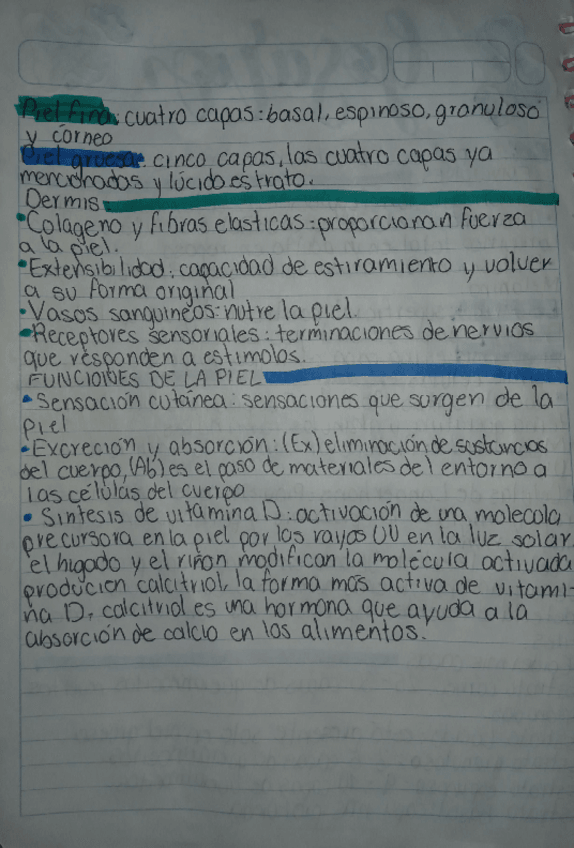 Piel fina: cuatro capas: basal, espinoso, granuloso
y corneo
Piel gruesa: cinco capas, las cuatro capas ya
mencionadas y lúcido estrato.
Dermis
•Colageno y fibras elasticas: proporcionan fuerza
a la piel.
•Extensibilidad: capacidad de estiramiento y volver
a su forma original
•Vasos sanguineos: nutre la piel
•Receptores sensoriales: terminaciones de nervios
que responden a estimolos.
FUNCIONES DE LA PIEL
•Sensación cutánea: sensaciones que surgen de la
piel
•Excreción y absorción: (Ex) eliminación de sustancias
del cuerpo, (Ab) es el paso de materiales del entorno a
las células del cuerpo
•Sintesis de vitamina D: activación de una molecola
precursora en la piel por los rayos UV en la luz solar,
el higado y el riñon modifican la molécula activada
producien calcitriol, la forma más activa de vitami-
na D, calcitriol es una hormona que ayuda a la
absorción de calcio en los alimentos.